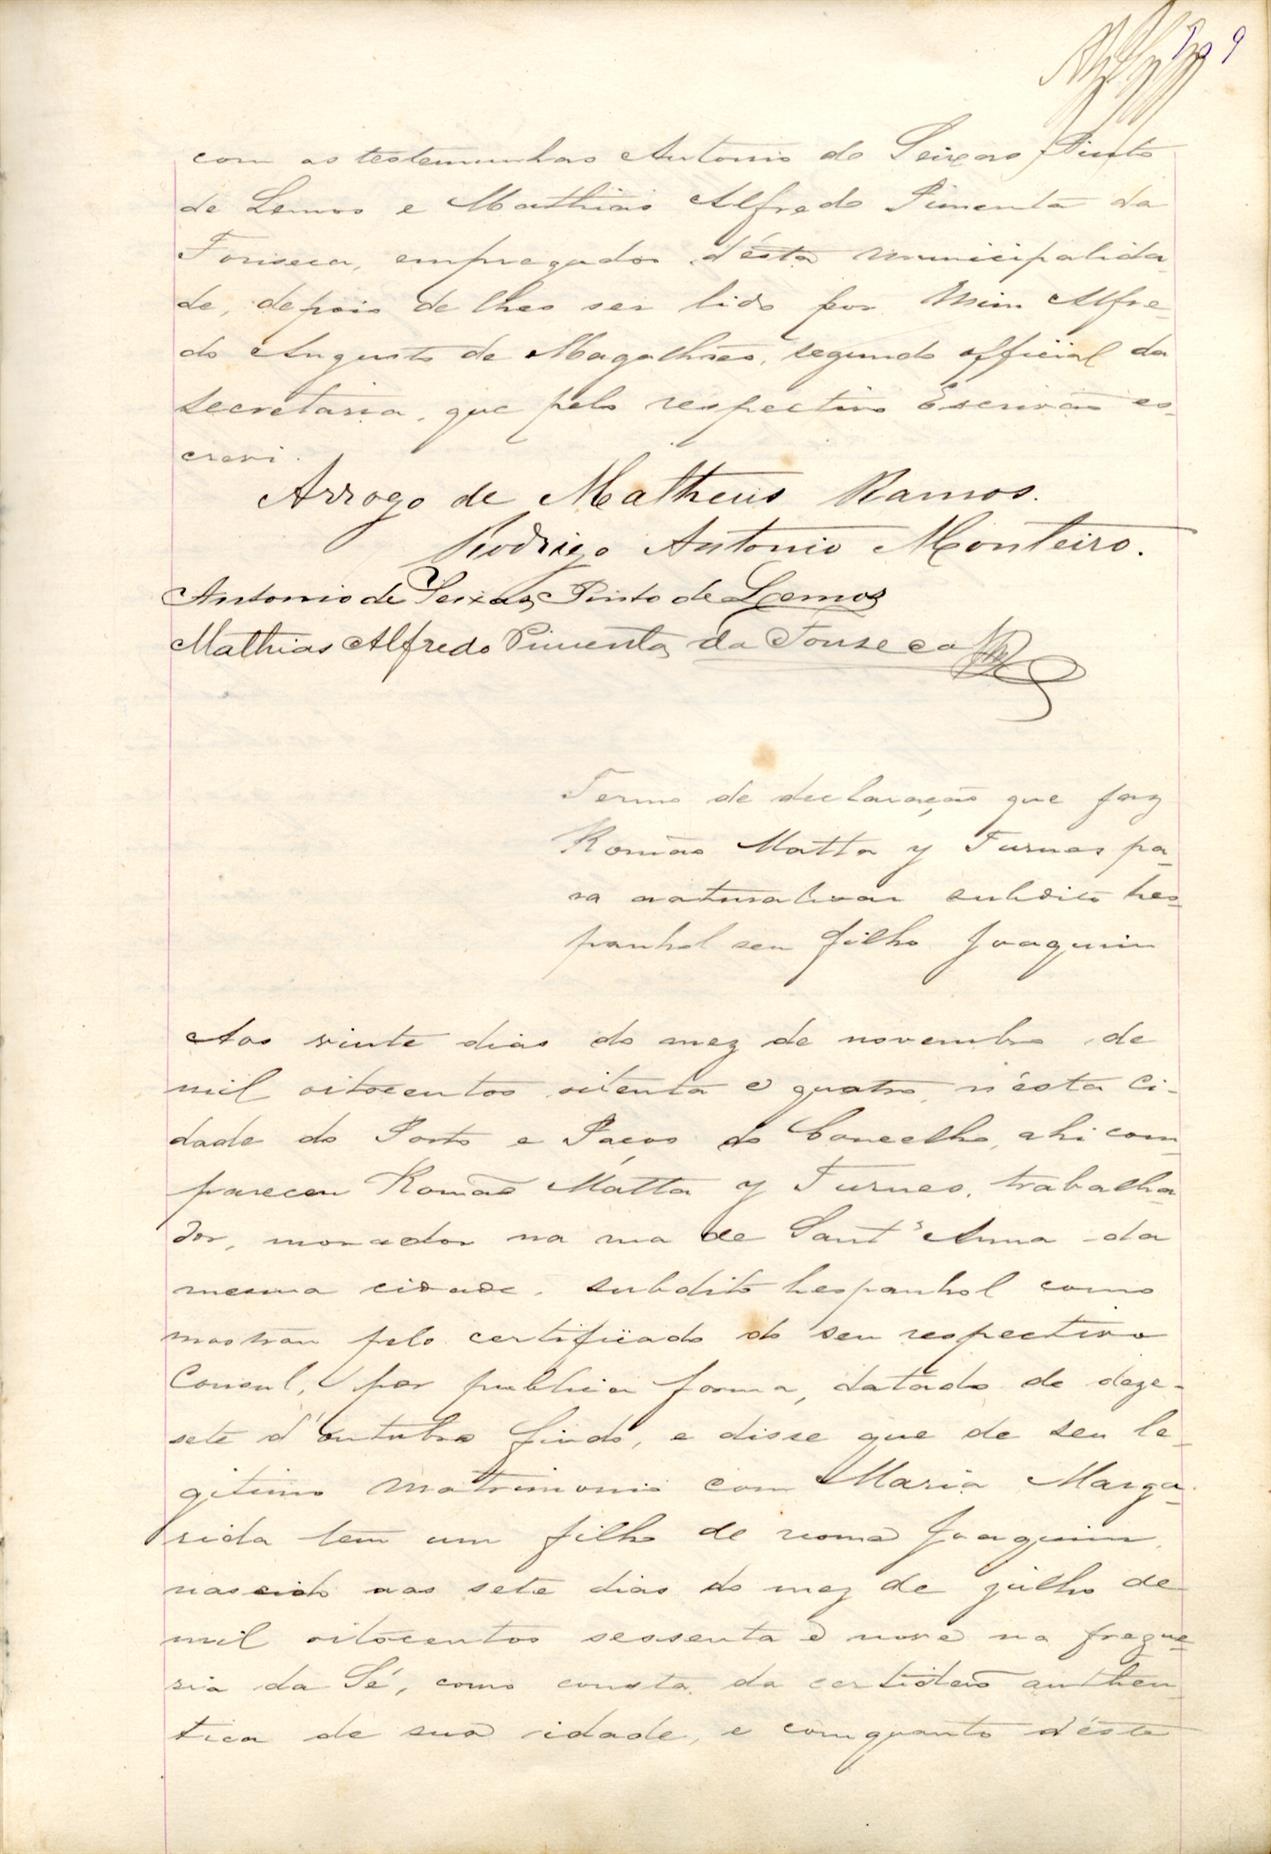 9
com as testemunhas Antonio de Seixas Pinto
de Lemos e Mathias Alfredo Pimenta da
Fonseca, empregados d'esta municipalida-
de, depois de lhes ser lido por mim Alfre-
do Augusto de Magalhães, segundo official da
secretaria, que pelo respectivo Escrivão es-
crevi.
Arrogo de Matheus Ramos.
Rodrigo Antonio Monteiro.
Antonio de Seixas Pinto de Lemos
Mathias Alfredo Pimenta da Fonseca
Termo de declaração que faz
Romão Matta y Turnes pa-
ra naturalisar subdito hes-
panhol seu filho Joaquim
Aos vinte dias do mez de novembro de
mil oitocentos oitenta e quatro, n'esta ci-
dade do Porto e Paços do Concelho, ahi com-
pareceu Romão Matta y Turnes, trabalha-
dor, morador na rua de Sant'Anna da
mesma cidade, subdito hespanhol como
mostrou pelo certificado do seu respectivo
Consul, por publica forma, datado de deze-
sete d'outubro findo, e disse que de seu le-
gitimo matrimonio com Maria Marga-
rida tem um filho de nome Joaquim,
nascido aos sete dias do mez de julho de
mil oitocentos sessenta e nove na fregue-
sia da Sé, como consta da certidão authen-
tica de sua idade, e comquanto d'este